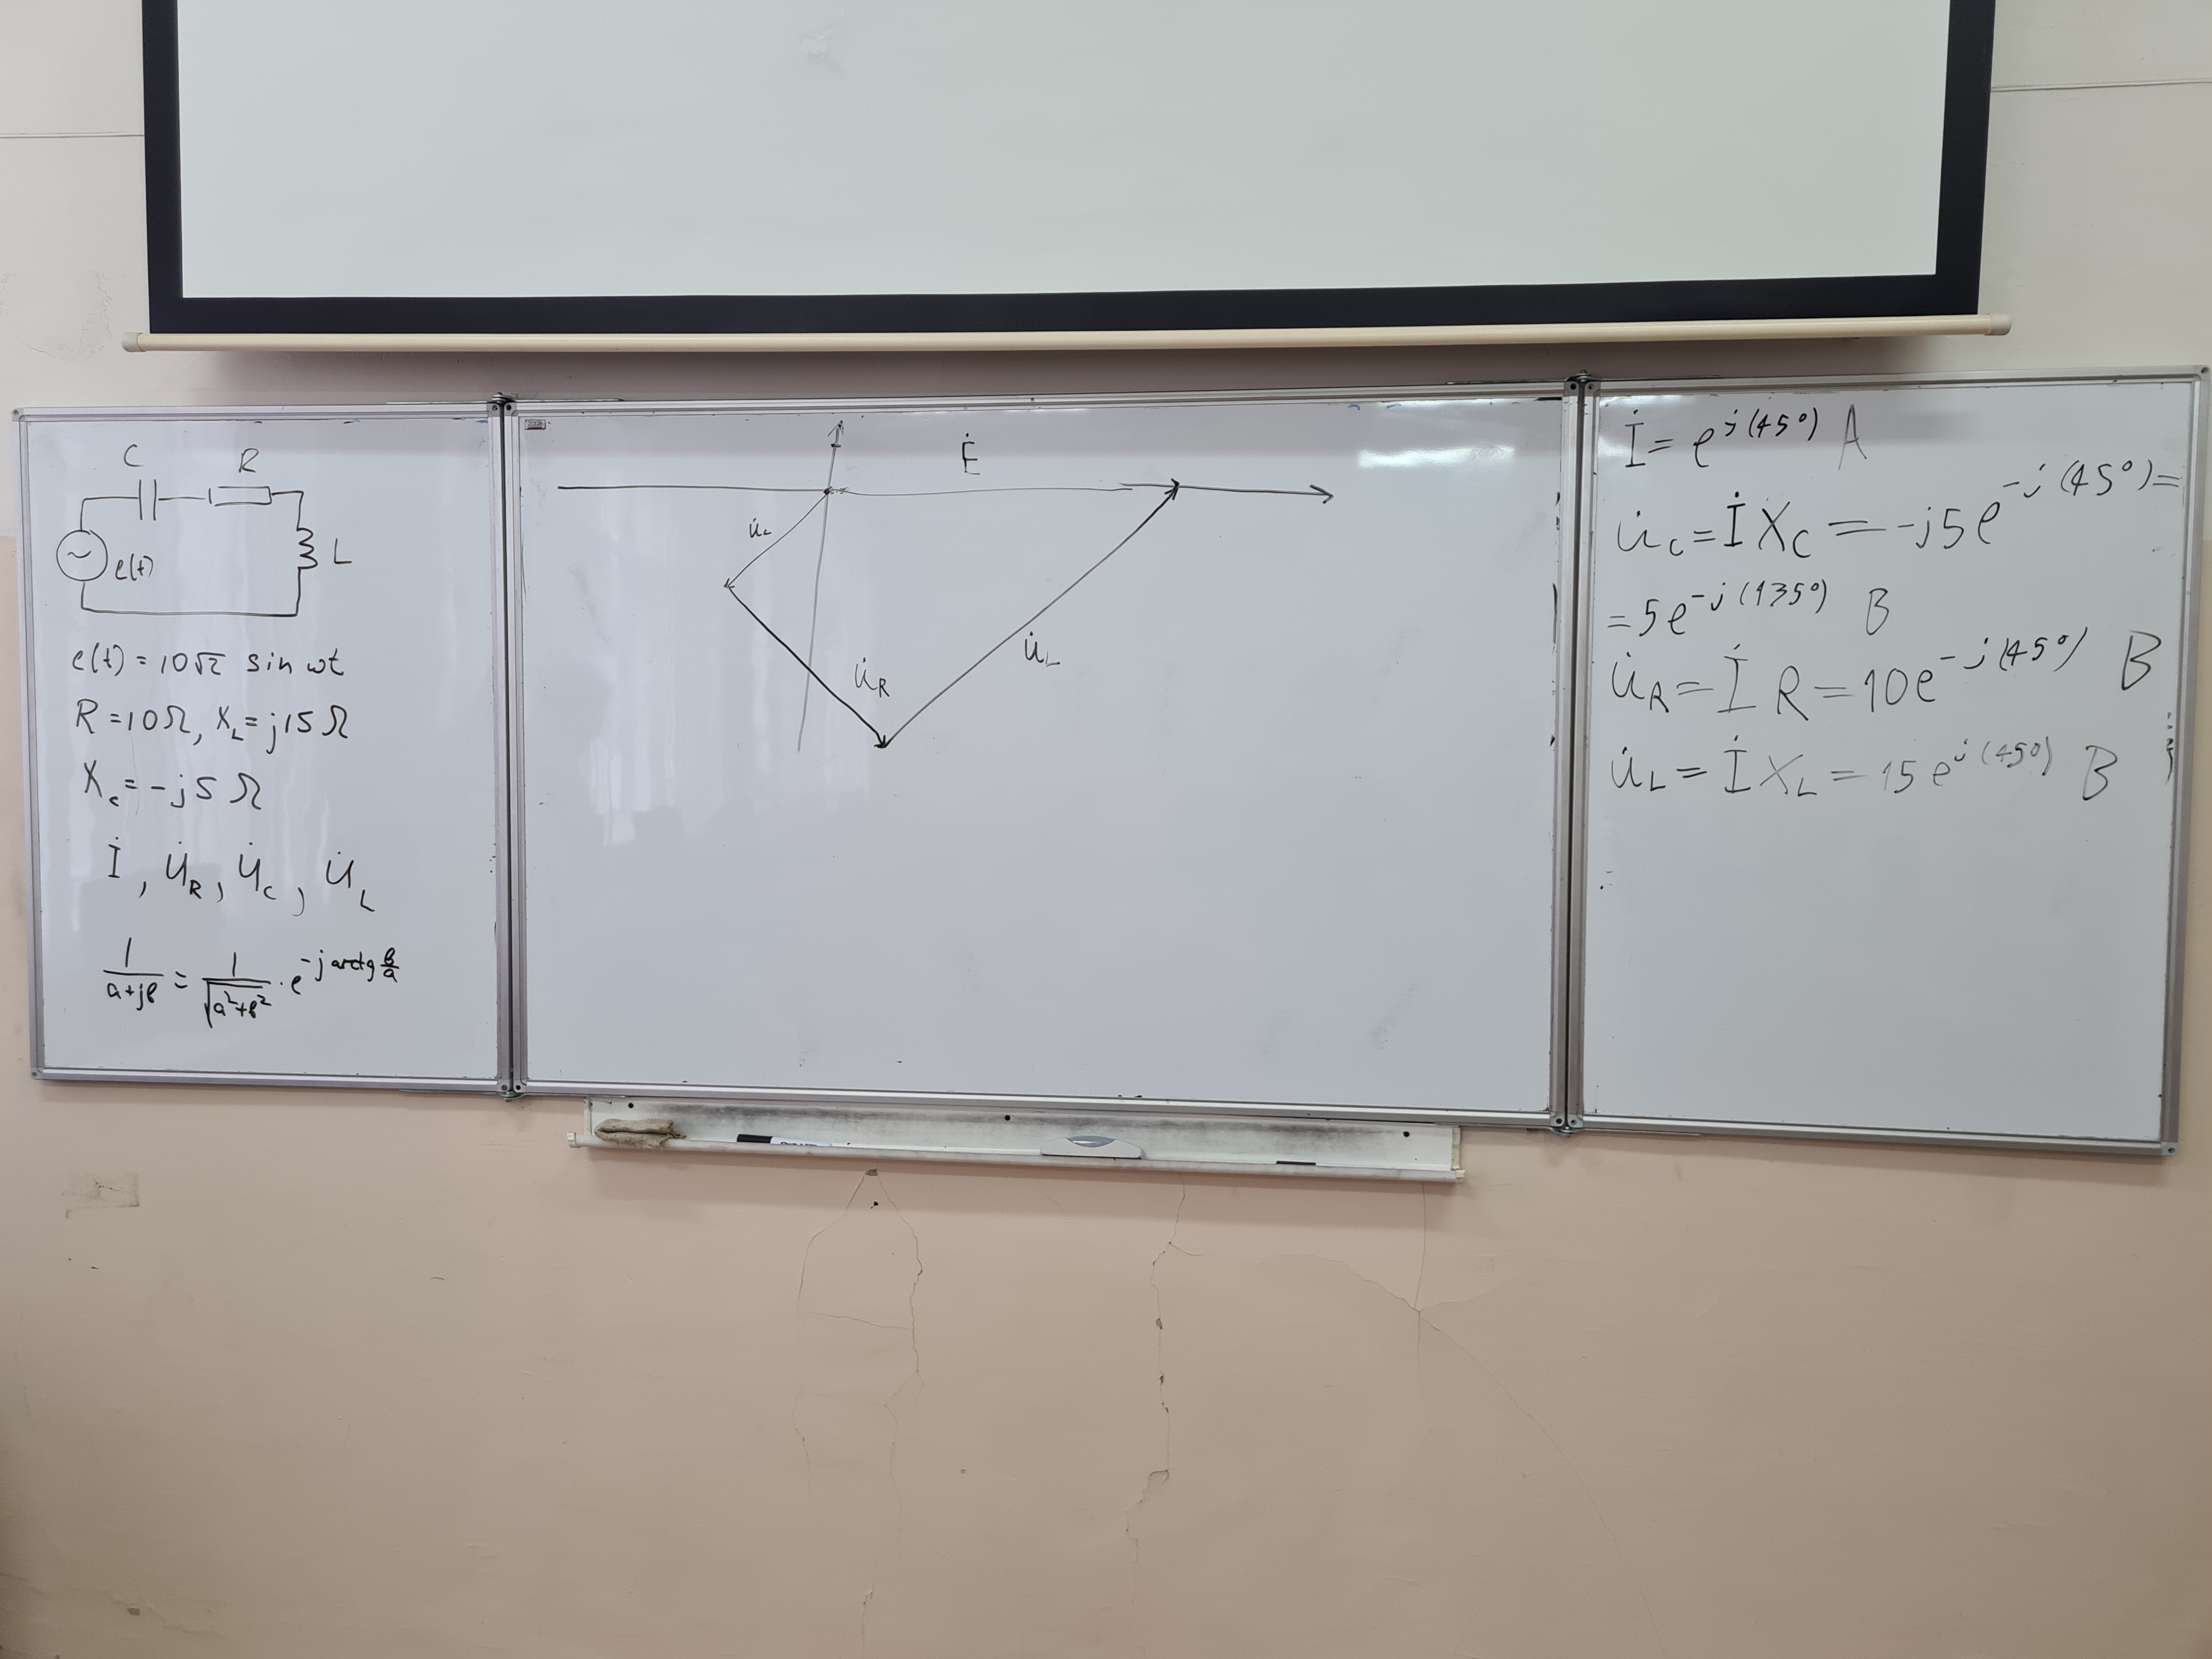 C R
e(t) L
e(t) = 10√2 sin ωt
R = 10 Ω, X_L = j15 Ω
X_c = -j5 Ω
İ, U̇_R, U̇_C, U̇_L
1/(a+jв) = 1/√(a²+в²) · e^(-j arctg в/a)
Ė
U̇_c
U̇_R
U̇_L
İ = e^(j(45°)) A
U̇_C = İ X_C = -j5e^(-j(45°)) =
= 5e^(-j(135°)) B
U̇_R = İ R = 10e^(-j(45°)) B
U̇_L = İ X_L = 15e^(j(45°)) B